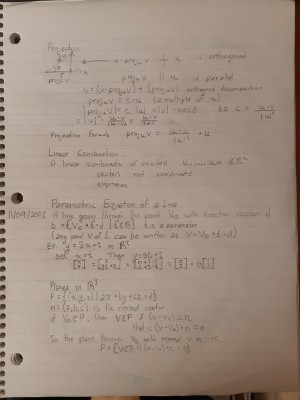 Projection
v - proj_u v ⊥ u is orthogonal
proj_u v || u is parallel
v = (v - proj_u v) + (proj_u v) orthogonal decomposition
proj_u v = c·u (a multiple of u)
|proj_u v| = c |u| = |v| · cosθ so c = u·v / |u|²
= |v| u·v / |u||v| = u·v / |u|
Projection formula proj_u v = u·v / |u|² · u
Linear Combination
A linear combination of vectors
vectors not coordinate
expression
Parametric Equation of a Line
11/09/2018 A line going through the point V₀ with direction vector d
L = {V₀ + t·d | t∈ℝ} t is a parameter
(any point V of L can be written as V = V₀ + t·d)
Ex: y = 3x + in ℝ²
set x = t Then y = 3t +
Planes in ℝ³
P = {(x,y,z) | ax + by + cz = d}
n = (a,b,c) is the normal vector
if V₀∈P, then V∈P if (v - v₀) ⊥ n
that is (v - v₀) · n = 0
So the plane through V₀ with normal n is
P = {V∈ℝ³ | (v - v₀) · n = 0}